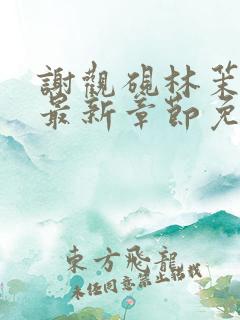 謝觀硯林茉
最新章節免
東方飛龍
未經同意禁止轉載